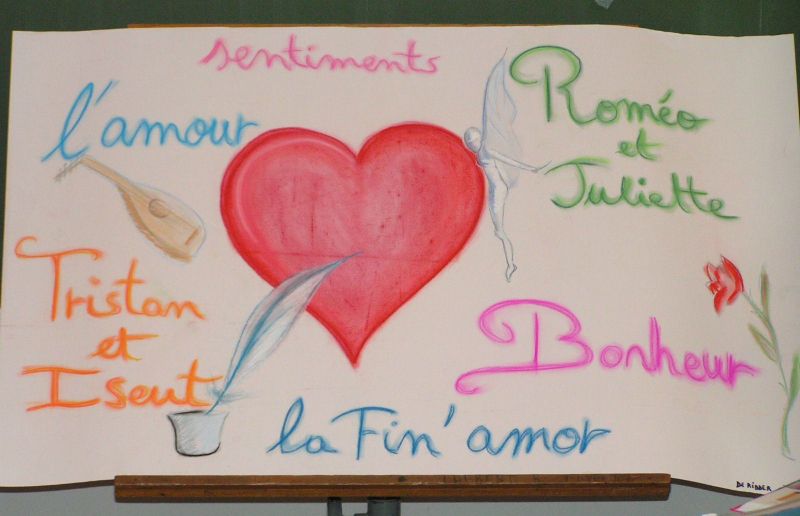 sentiments
l'amour
Roméo
et
Juliette
Tristan
et
Iseut
Bonheur
la Fin' amor
DE RIDDER